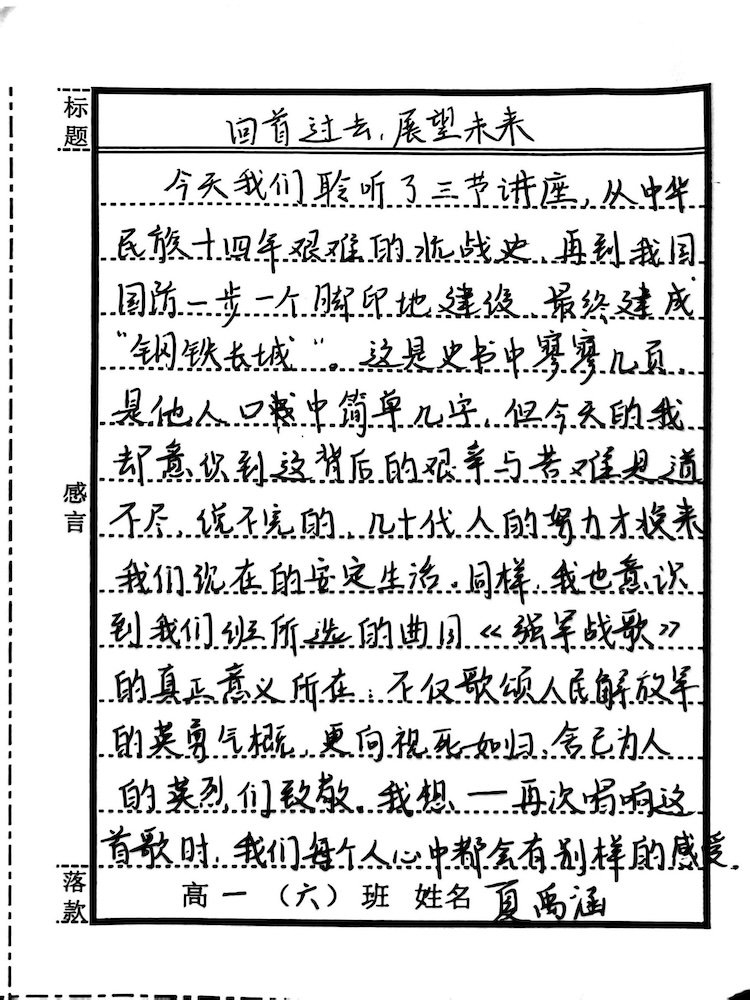 标题
回首过去，展望未来
今天我们聆听了三节讲座，从中华
民族十四年艰难的抗战史，再到我国
国防一步一个脚印地建设，最终建成
“钢铁长城”。这是史书中寥寥几页，
是他人口中简单几字，但今天的我
却意识到这背后的艰辛与苦难是道
不尽，说不完的，几十代人的努力才换来
我们现在的安定生活。同样，我也意识
到我们班所选的曲目《强军战歌》
的真正意义所在：不仅歌颂人民解放军
的英勇气概，更向视死如归、舍己为人
的英烈们致敬。我想——再次唱响这
首歌时，我们每个人心中都会有别样的感受。
感言
落款
高一（六）班 姓名 夏禹涵